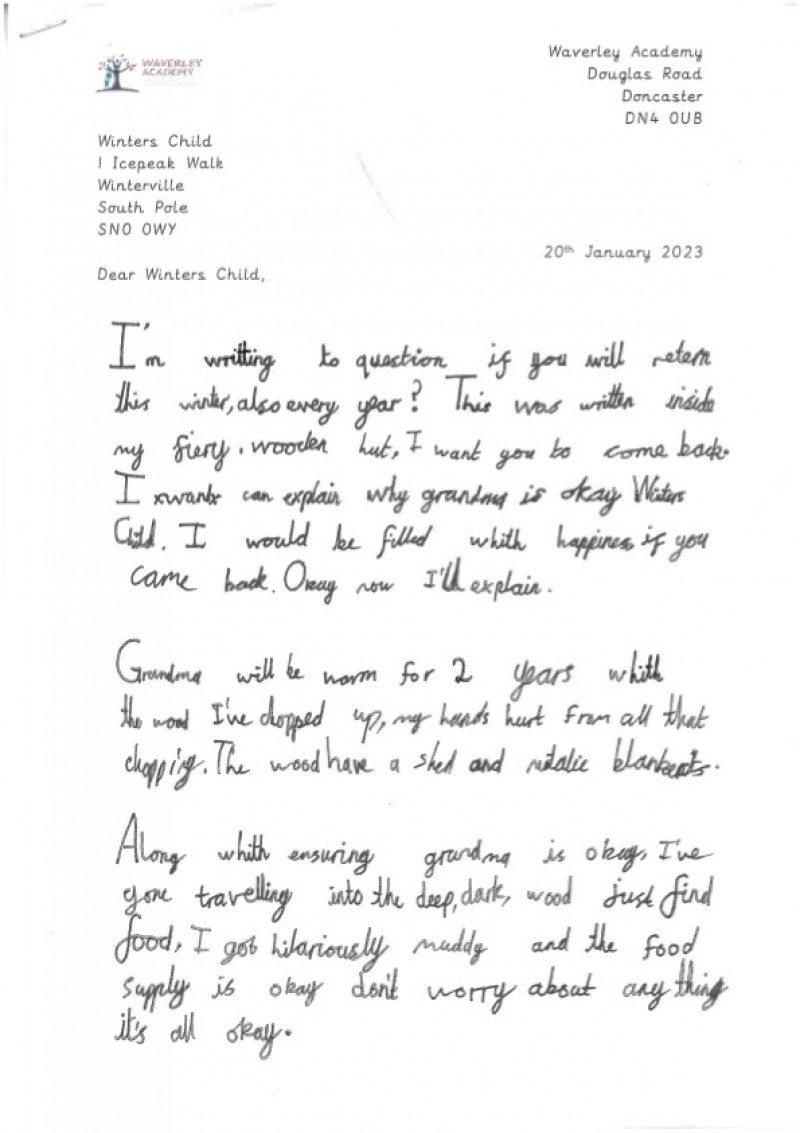 WAVERLEY
ACADEMY
Waverley Academy
Douglas Road
Doncaster
DN4 0UB
Winters Child
1 Icepeak Walk
Winterville
South Pole
SN0 0WY
20th January 2023
Dear Winters Child,
I'm writting to question if you will retern
this winter, also every year? This was written inside
my fiery. wooden hut, I want you to come back.
I can explain why grandma is okay Winters
Child. I would be filled whith happiness if you
came back. Okay now I'll explain.
Grandma will be warm for 2 years whith
the wood I've chopped up, my hands hurt from all that
chopping. The wood have a shed and blankeats.
Along whith ensuring grandma is okay, I've
gone travelling into the deep, dark, wood just find
food, I got hilariously muddy and the food
supply is okay don't worry about any thing
it's all okay.